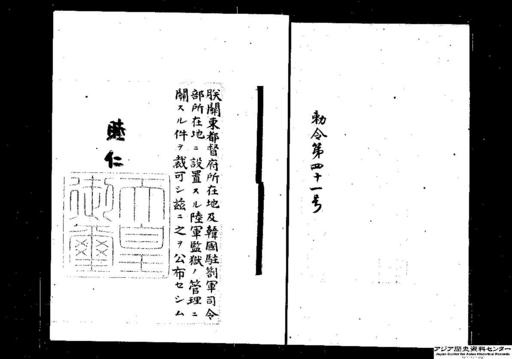 勅令第四十一号
朕關東都督府所在地及韓國駐劄軍司令
部所在地ニ設置スル陸軍監獄ノ管理ニ
關スル件ヲ裁可シ茲ニ之ヲ公布セシム
睦仁
天皇
御璽
アジア歴史資料センター
Japan Center for Asian Historical Records